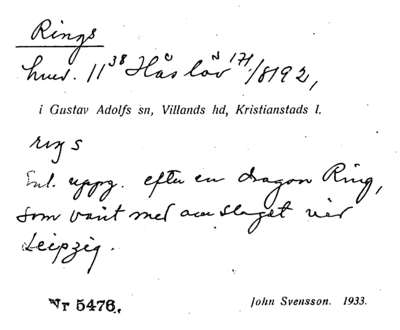 Rings
hmd. 11³⁸ Håslöv N 171/8192,
i Gustav Adolfs sn, Villands hd, Kristianstads l.
rıŋs
Enl. uppg. efter en dragon Ring,
som varit med om slaget vid
Leipzig.
Nr 5476.
John Svensson. 1933.